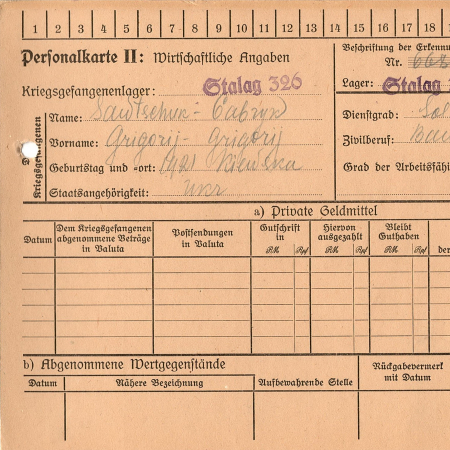 1 2 3 4 5 6 7 8 9 10 11 12 13 14 15 16 17 18
Personalkarte II: Wirtschaftliche Angaben
Beschriftung der Erkennu
Nr.
Kriegsgefangenenlager: Stalag 326
Lager: Stalag
Des Kriegsgefangenen
Name: Sawtschuk - Cabryk
Dienstgrad: Sol
Vorname: Grigorij - Grigorij
Zivilberuf: Bau
Geburtstag und =ort:
Grad der Arbeitsfähi
Staatsangehörigkeit: ukr
a) Private Geldmittel
Datum
Dem Kriegsgefangenen abgenommene Beträge in Valuta
Postsendungen in Valuta
Gutschrift in
RM. Rpf
Hiervon ausgezahlt
RM. Rpf
Bleibt Guthaben
RM. Rpf
der
b) Abgenommene Wertgegenstände
Rückgabevermerk mit Datum
Datum
Nähere Bezeichnung
Aufbewahrende Stelle